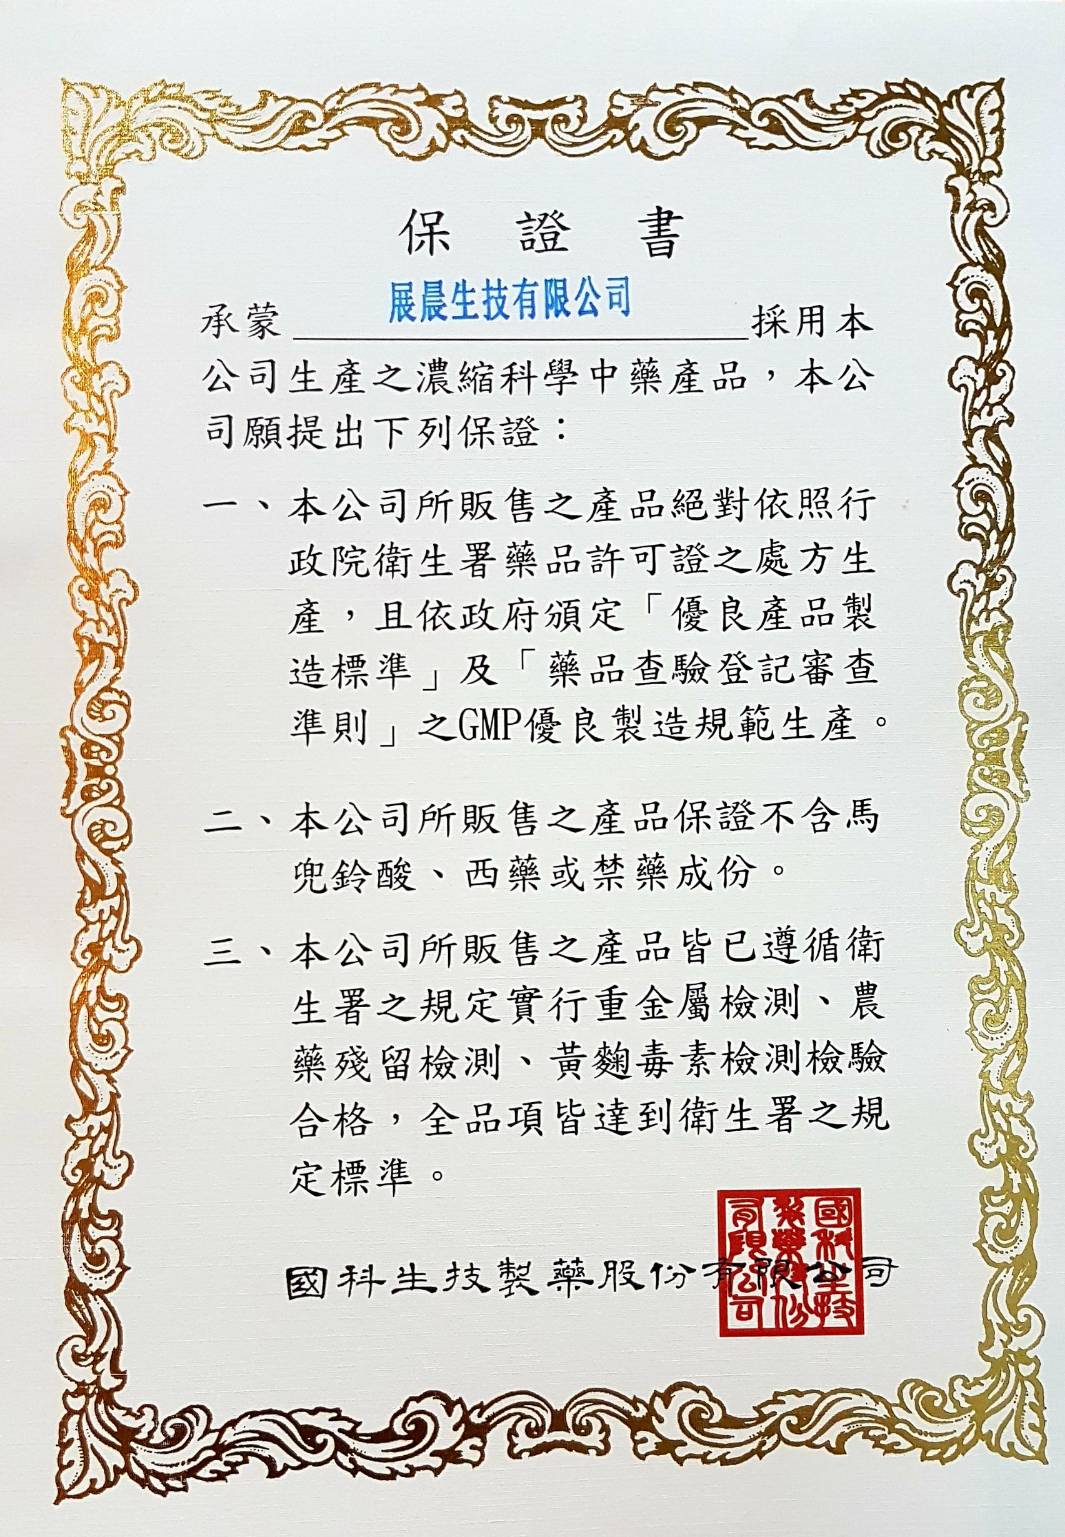 保證書
展晨生技有限公司
承蒙 採用本
公司生產之濃縮科學中藥產品，本公
司願提出下列保證：
一、本公司所販售之產品絕對依照行
政院衛生署藥品許可證之處方生
產，且依政府頒定「優良產品製
造標準」及「藥品查驗登記審查
準則」之GMP優良製造規範生產。
二、本公司所販售之產品保證不含馬
兜鈴酸、西藥或禁藥成份。
三、本公司所販售之產品皆已遵循衛
生署之規定實行重金屬檢測、農
藥殘留檢測、黃麴毒素檢測檢驗
合格，全品項皆達到衛生署之規
定標準。
國科生技製藥股份有限公司
國科生技
製藥股份
有限公司